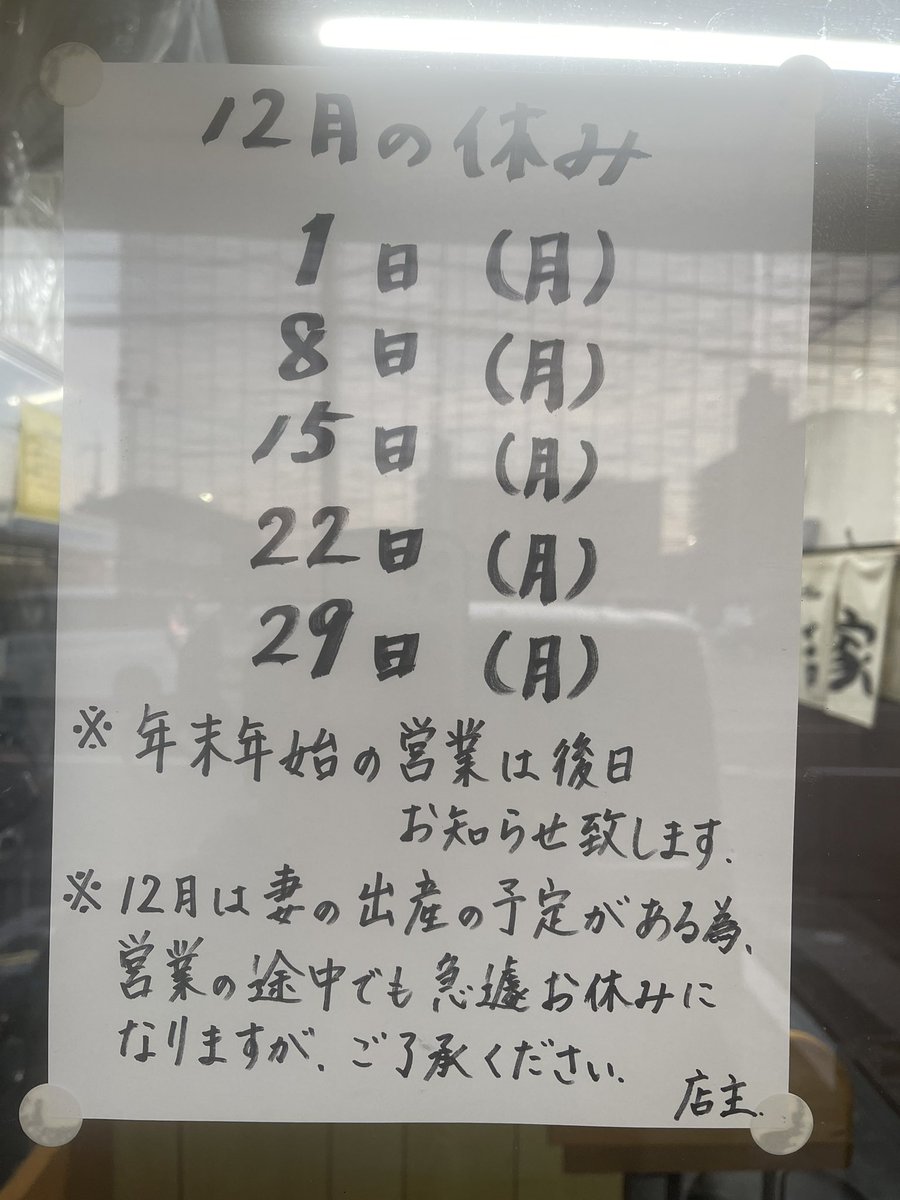 12月の休み
1日(月)
8日(月)
15日(月)
22日(月)
29日(月)
※年末年始の営業は後日
お知らせ致します.
※12月は妻の出産の予定がある為、
営業の途中でも急遽お休みに
なりますが、ご了承ください.
店主.
家